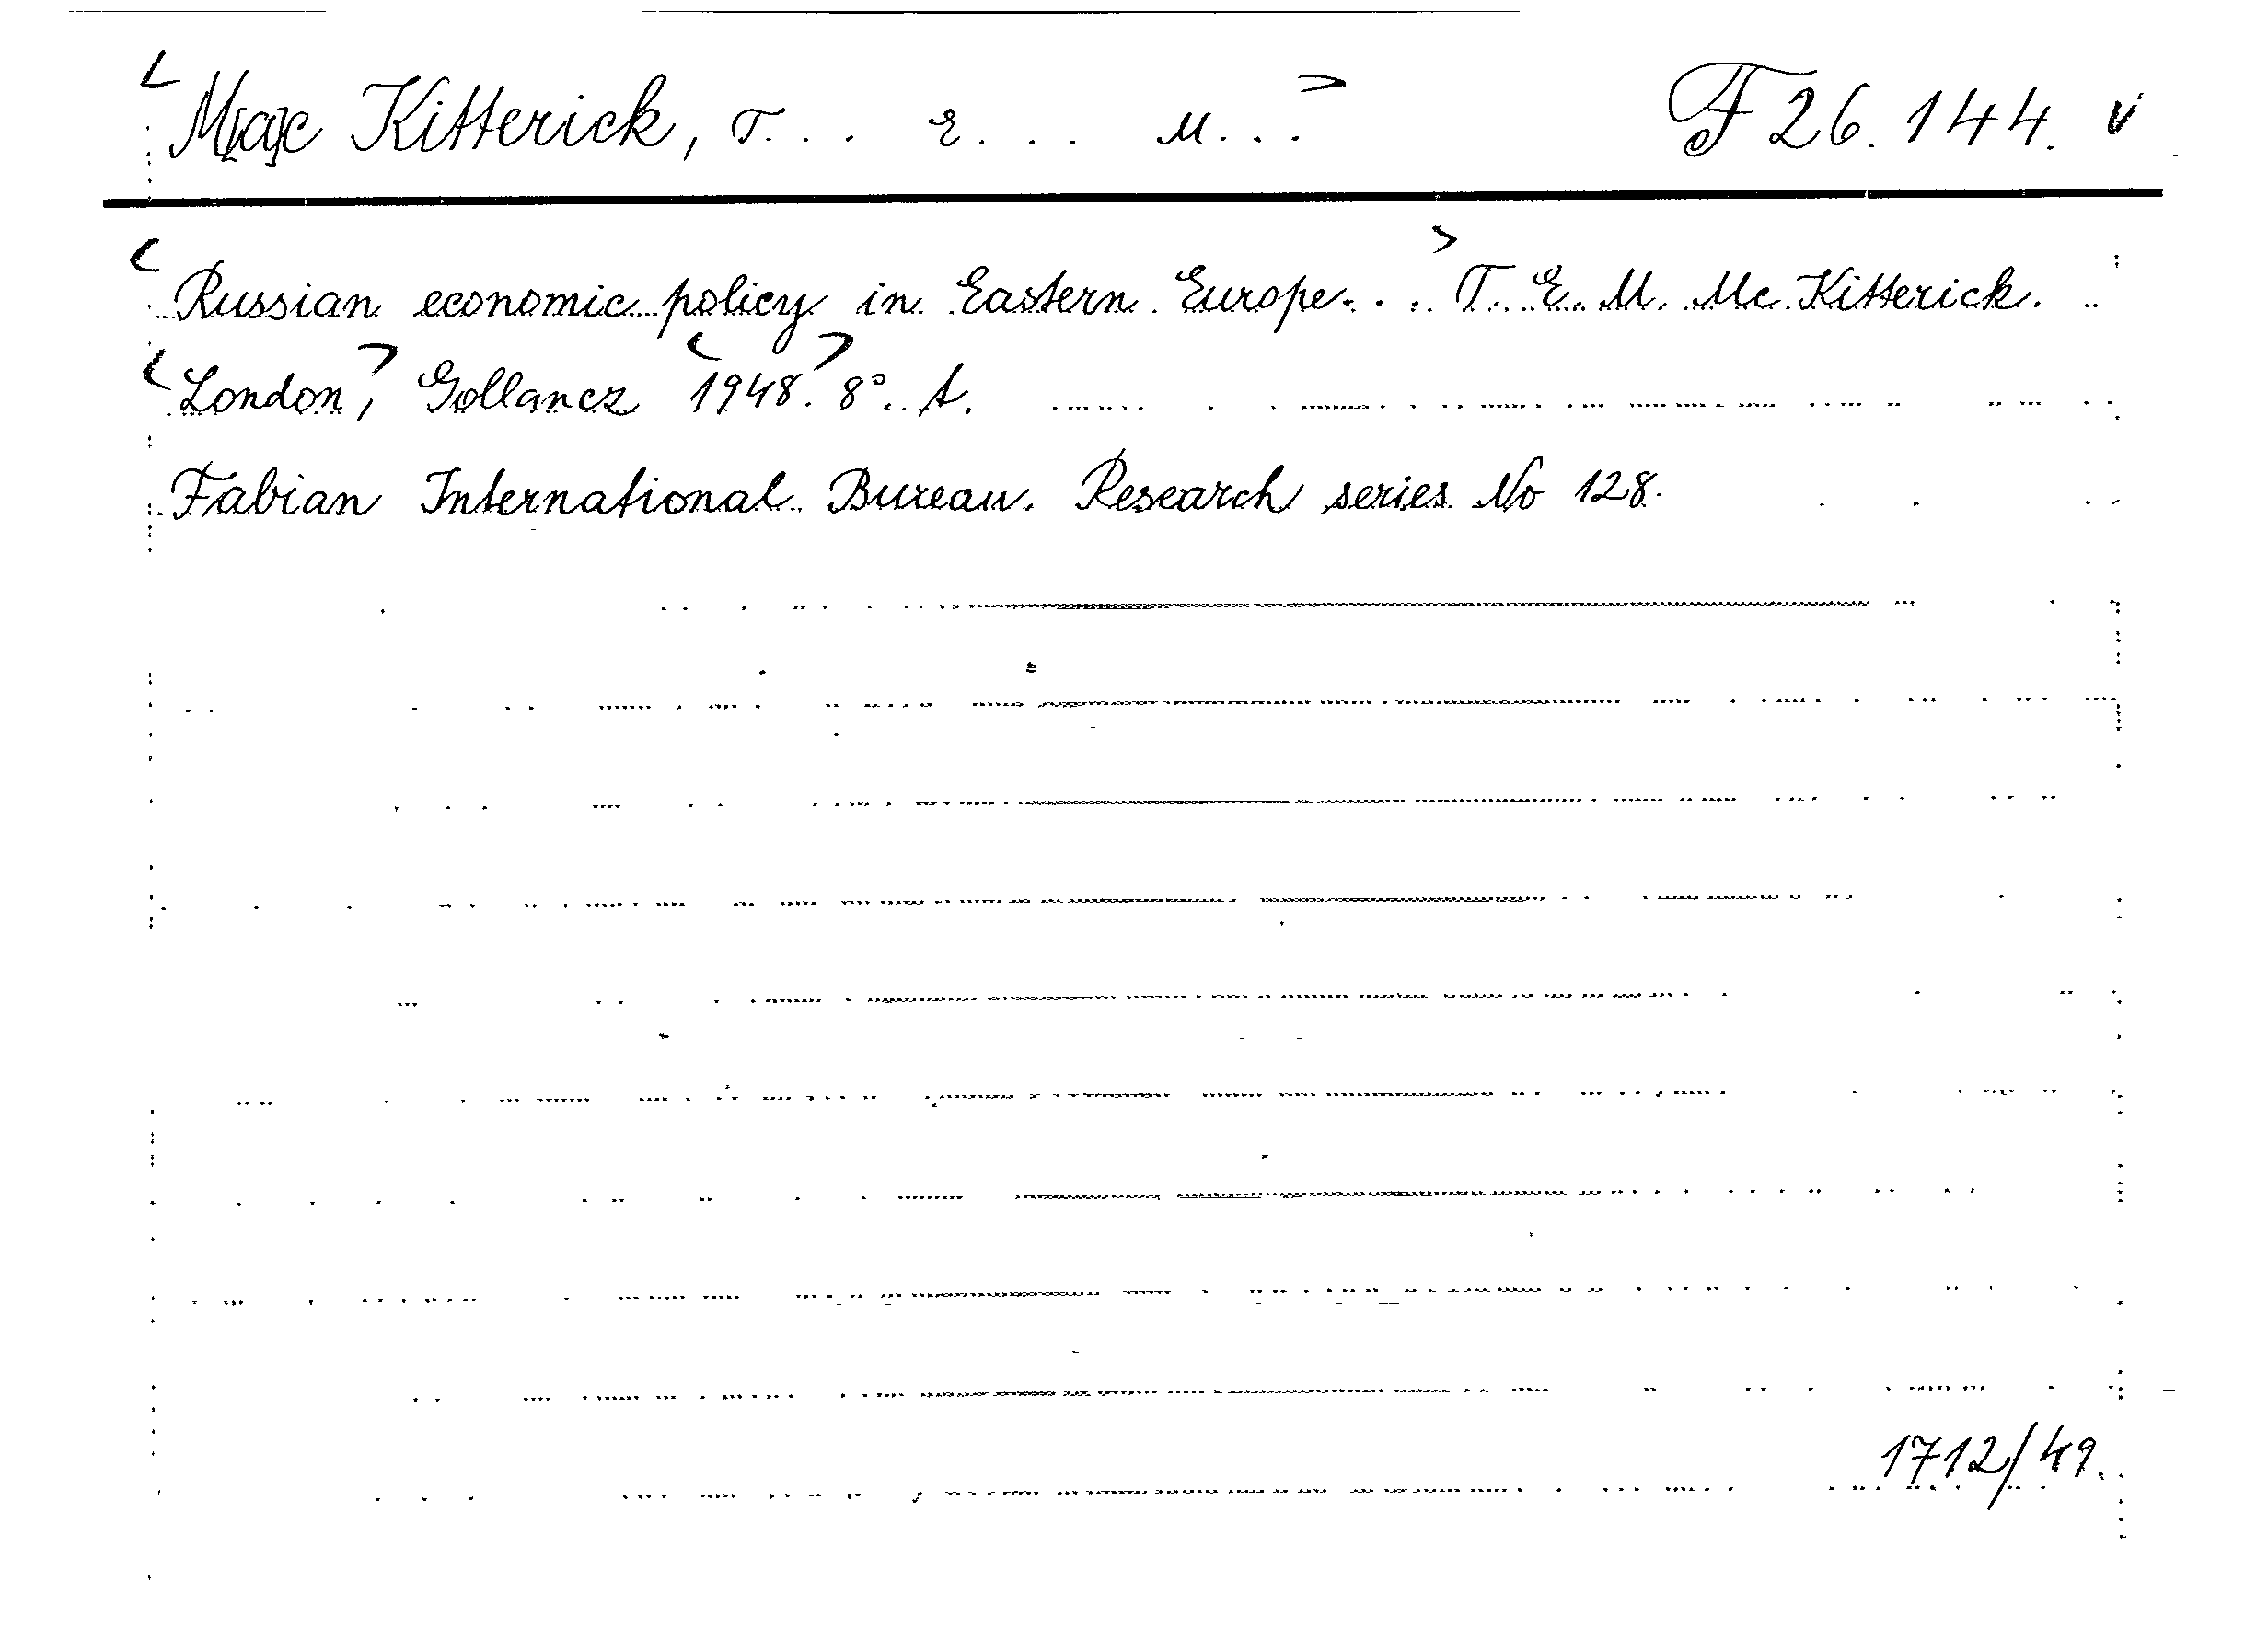 <M[a]c Kitterick, T... E... M...> F 26.144. v
<Russian economic policy in Eastern Europe...> T. E. M. Mc Kitterick.
<London,> Gollancz <1948.> 8°. A.
Fabian International Bureau. Research series No 128.
1712/49.